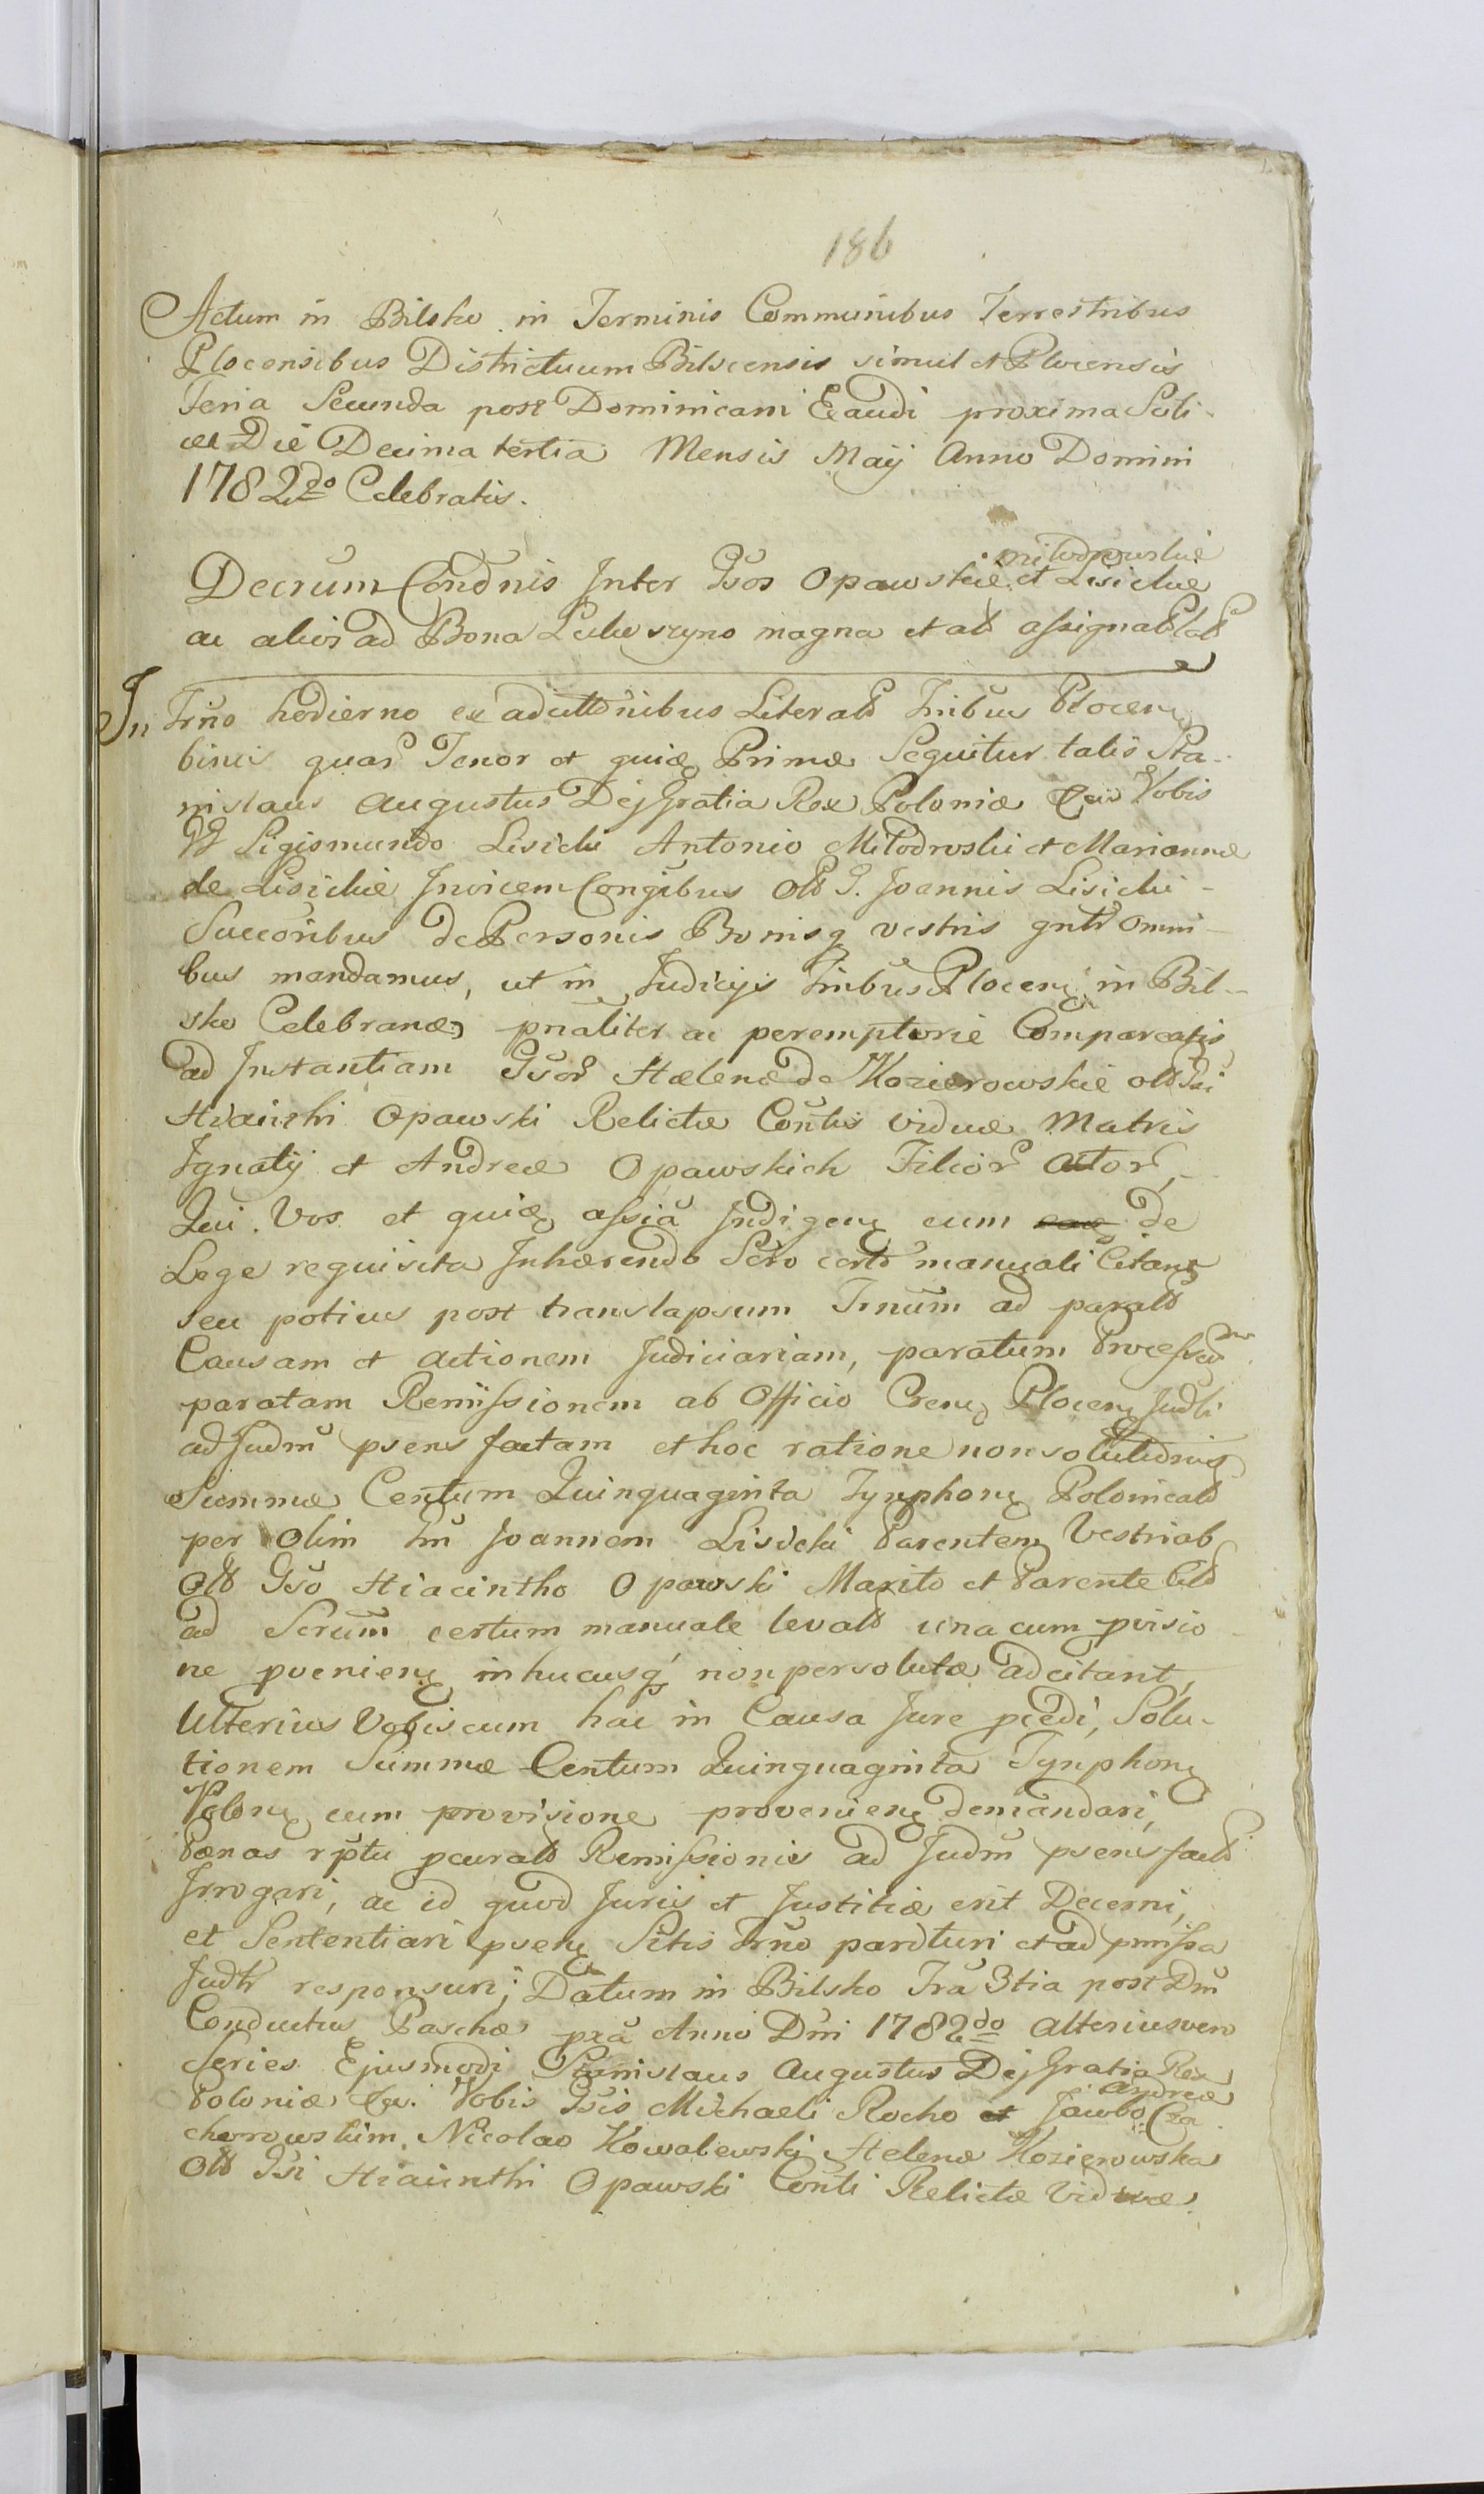 186
Actum in Bilsko in Terminis Communibus Terrestribus
Plocensibus Districtuum Bilscensis simul et Plocensis
Feria Secunda post Dominicam Exaudi proxima Scili-
cet Die Decima tertia Mensis Maij Anno Domini
1782do Celebratis.
Milodrowskie
Decrum Condnis Inter Gsos Opawskie et Lisickie
ac alios ad Bona magna et ald assignald
In Trno hodierno ex Literald Tribus Plocen
binis quar Tenor et quid Primæ Sequitur talis Sta-
nislaus Augustus Dej Gratia Rex Poloniæ Vobis
Sigismundo Lisicki Antonio Milodroski et Mariannæ
de Lisickie Invicem Congibus Old G. Joannis Lisicki -
Succoribus de Personis Bonisq vestris gntr Omni-
bus mandamus, ut in Judicijs Tribus Plocen in Bil-
sko Celebran pnaliter ac peremptorie Compareatis
ad Instantiam Gsor Helenæ de Kozierowskie old Gsi
Hiacinthi Opawski Relictæ Contis viduæ Matris
Ignatij et Andreæ Opawskich Filior Actor,
Qui Vos et assia Indigen cum de
Lege requisita Inhærendo Scro certo manuali Citant
seu potius post translapsum Trnum ad parald
Causam et actionem Judiciariam, paratum
paratam Remissionem ab Officio Cren Plocen Judli
ad Judm psens factam et hoc ratione non
Summæ Centum Quinquaginta Tynphon Polonicald
per Olim Joannem Lisicki Parentem Vestri ab
Old Gso Hiacintho Opawski Marito et Parente
ad Scrum certum manuale levald una cum pvisio
ne pvenien in hucusq non persolutæ adcitant,
Ulterius Vobiscum hac in Causa Jure pcedi, Solu-
tionem Summæ Centum Quinquaginta Tynphon
Polon cum provisione provenien demandari,
Pænas rptu pcurald Remissionis ad Judm psens factæ
Irrogari, ac id quod Juris et Justitiæ erit Decerni,
et Sententiari psen Sitis Trno pardturi et ad pmissa
Judtr responsuri; Datum in Bilsko Fra 3tia post Dm
Conductus Paschæ pxa Anno Dni 1782do Alterius vero
Series Ejusmodi Stanislaus Augustus Dej Gratia Rex
Andreæ
Poloniæ Vobis Gsis Michaeli Rocho et Jacobo Cza
chorowskim, Nicolao Kowalewski Helenæ Kozierowska
Old Gsi Hiacinthi Opawski Conti Relictæ Viduæ